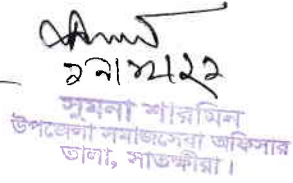 সুমনা শারমিন
উপজেলা সমাজসেবা অফিসার
তালা, সাতক্ষীরা।